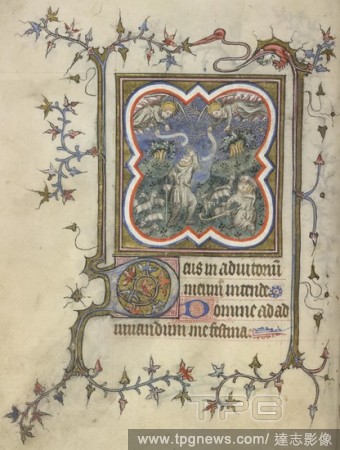 eus in adiutoriu
meum intende
Domine ad ad
iuuandum me festina
TPG
www.tpgnews.com/ 達志影像